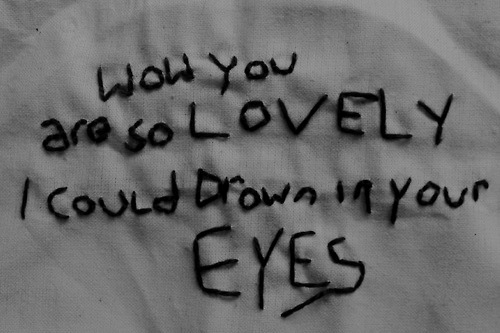 WOW YOU
are so LOVELY
I COULD Drown in your
EYES